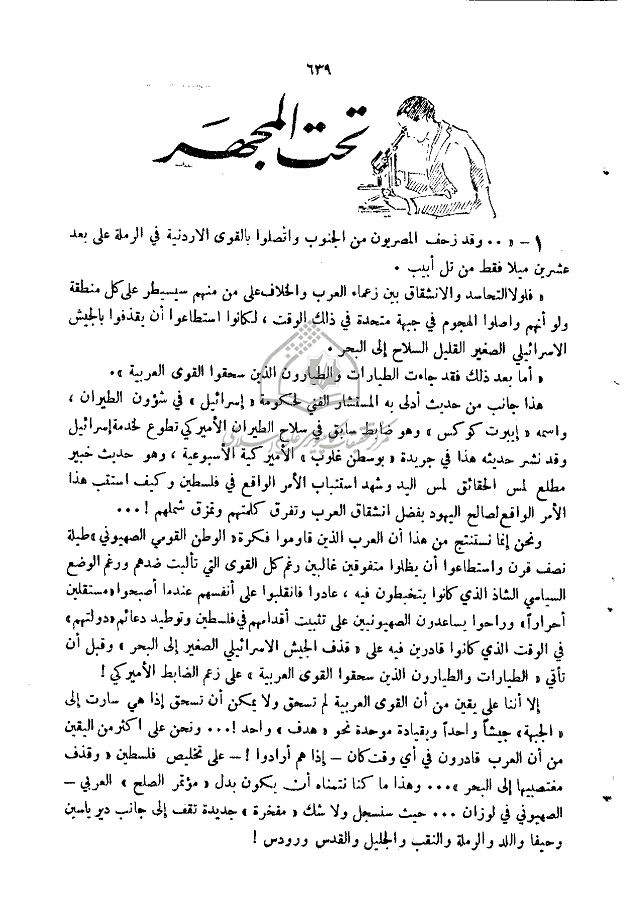 ٦٣٩
تحت المجهر
١ - « ٠٠ وقد زحف المصريون من الجنوب واتصلوا بالقوى الاردنية في الرملة على بعد
عشرين ميلا فقط من تل أبيب ٠
« فلولا التحاسد والانشقاق بين زعماء العرب والخلاف على من منهم سيسيطر على كل منطقة
ولو أنهم واصلوا الهجوم في جبهة متحدة في ذلك الوقت ، لكانوا استطاعوا أن يقذفوا بالجيش
الاسرائيلي الصغير القليل السلاح إلى البحر ٠
« أما بعد ذلك فقد جاءت الطيارات والطيارون الذين سحقوا القوى العربية » ٠
هذا جانب من حديث أدلى به المستشار الفني لحكومة « إسرائيل » في شؤون الطيران ،
واسمه « إيبرت كوكس » وهو ضابط سابق في سلاح الطيران الأميركي تطوع لخدمة إسرائيل
وقد نشر حديثه هذا في جريدة « بوسطن غلوب » الأميركية الأسبوعية ، وهو حديث خبير
مطلع لمس الحقائق لمس اليد وشهد استتباب الأمر الواقع في فلسطين وكيف استتب هذا
الأمر الواقع لصالح اليهود بفضل انشقاق العرب وتفرق كلمتهم وتمزق شملهم ! ٠٠٠
ونحن إنما نستنتج من هذا أن العرب الذين قاوموا فكرة « الوطن القومي الصهيوني » طيلة
نصف قرن واستطاعوا أن يظلوا متفوقين غالبين رغم كل القوى التي تألبت ضدهم ورغم الوضع
السياسي الشاذ الذي كانوا يتخبطون فيه ، عادوا فانقلبوا على أنفسهم عندما أصبحوا « مستقلين
أحراراً » وراحوا يساعدون الصهيونيين على تثبيت أقدامهم في فلسطين وتوطيد دعائم « دولتهم »
في الوقت الذي كانوا قادرين فيه على « قذف الجيش الاسرائيلي الصغير إلى البحر » وقبل أن
تأتي « الطيارات والطيارون الذين سحقوا القوى العربية » على زعم الضابط الأميركي !
إلا أننا على يقين من أن القوى العربية لم تسحق ولا يمكن أن تسحق إذا هي سارت إلى
« الجبهة » جيشاً واحداً وبقيادة موحدة نحو « هدف » واحد ! ٠٠٠ ونحن على أكثر من اليقين
من أن العرب قادرون في أي وقت كان – إذا هم أرادوا ! – على تخليص فلسطين « وقذف
مغتصبيها إلى البحر » ٠٠٠ وهذا ما كنا نتمناه أن يكون بدل « مؤتمر الصلح » العربي –
الصهيوني في لوزان ٠٠٠ حيث سنسجل ولا شك « مفخرة » جديدة تقف إلى جانب دير ياسين
وحيفا واللد والرملة والنقب والجليل والقدس ورودس !